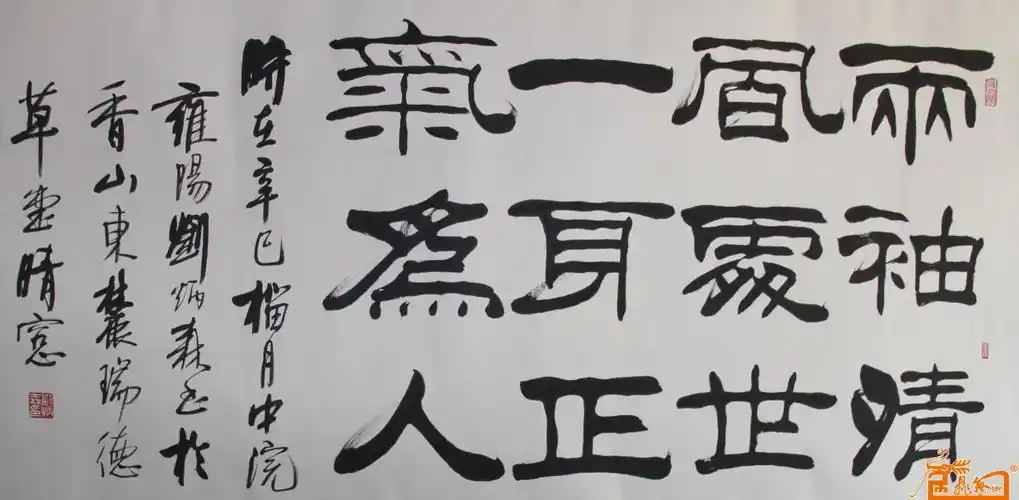 兩袖清
風處世
一身正
氣為人
時在辛巳榴月中浣
雍陽劉炳森書於
香山東麓瑞德
草堂晴窓